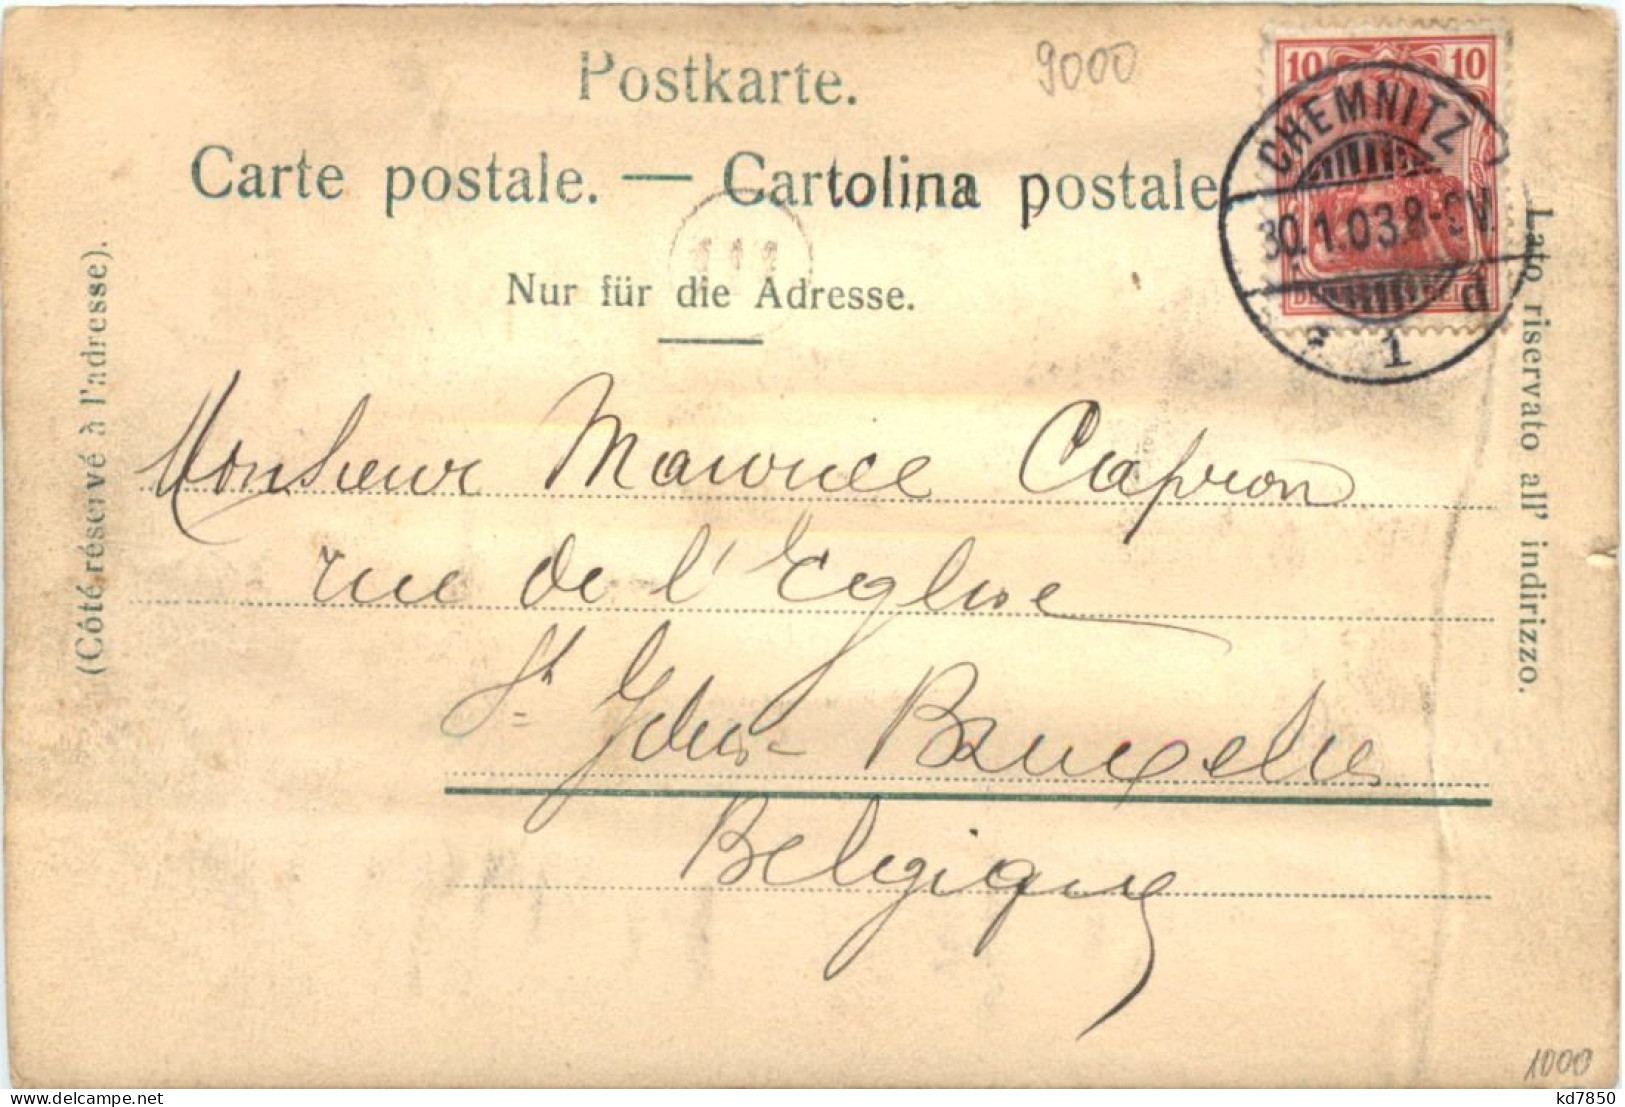 Postkarte.
9000
Carte postale. — Cartolina postale
Nur für die Adresse.
10 10
CHEMNITZ
30.1.03.8-9V.
1 d
(Côté réservé à l'adresse).
Lato riservato all' indirizzo.
Monsieur Maurice Capron
rue de l'Eglise
St Gilles - Bruxelles
Belgique
1000
kd7850